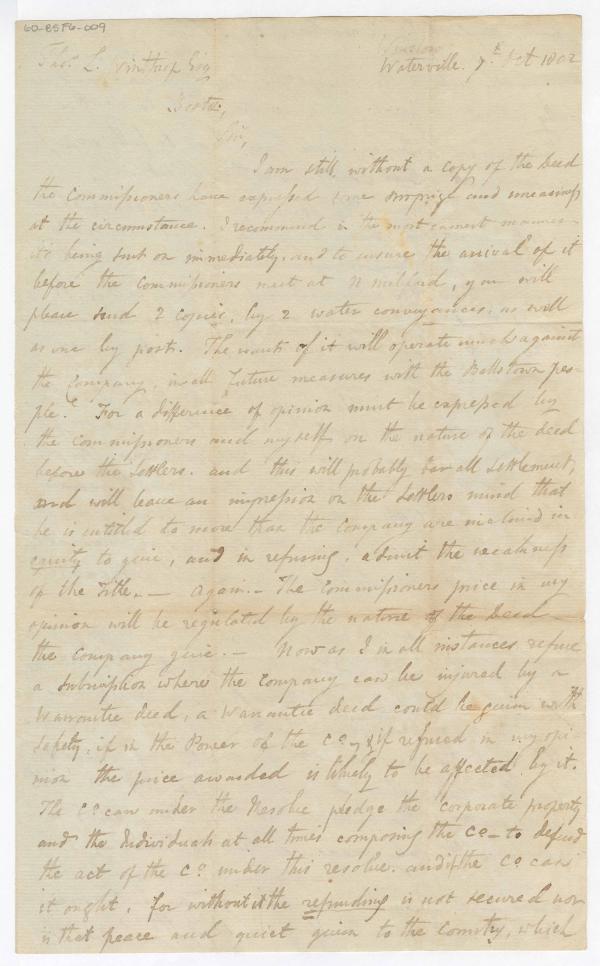 60-8SF6-009
Winslow
Thos. L. Winthrop Esq Waterville. 7th Oct 1802
Boston,
Sir,
I am still without a copy of the Deed
the Commissioners have expressed some surprize and uneasiness
at the circumstance. I recommend in the most earnest manner
it's being sent on immediately, and to ensure the arrival of it
before the Commissioners meet at N Milford, you will
please send 2 copies, by 2 water conveyances, as well
as one by post. The want of it will operate much against
the Company, in all future measures with the Ballstown peo-
ple. For a difference of opinion must be expressed by
the Commissioners and myself on the nature of the deed
before the settlers. and this will probably bar all settlement,
and will leave an impression on the settlers mind that
he is entitled to more than the Company are inclined in
equity to give, and in refusing, admit the weakness
of the Title. — Again. — The Commissioners price in my
opinion will be regulated by the nature of the Deed
the Company give. — Now as I in all instances refuse
a subscription where the Company can be injured by a
Warrantie deed, a Warrantie deed could be given with
safety, if in the Power of the Co. & if refused in my opi-
nion the price awarded is likely to be affected by it.
The Co can under the Resolve pledge the corporate property
and the Individuals at all times composing the Co — to defend
the act of the Co. under this resolve. and if the Co can
it ought, for without it the refunding is not secured nor
is that peace and quiet given to the Country, which